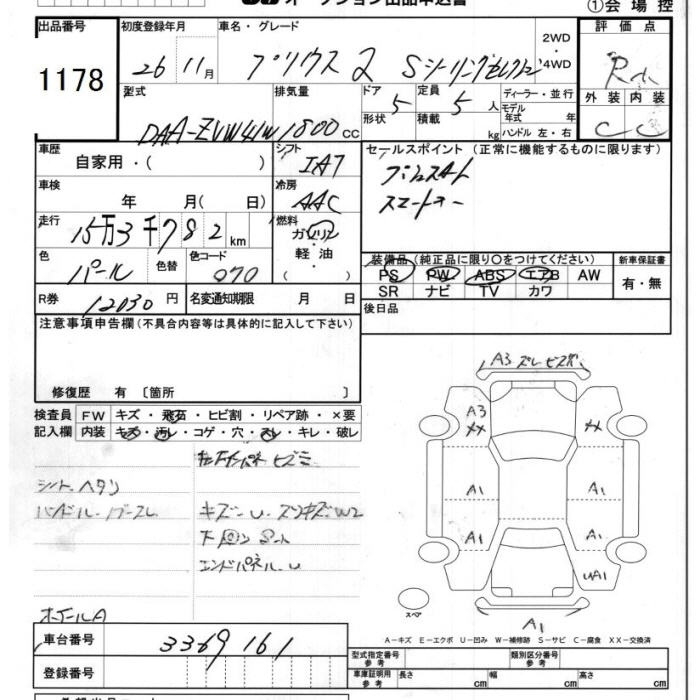 ①会場控
出品番号 1178
初度登録年月 26 11月
車名・グレード プリウス 2 Sツーリングセレクション
2WD・4WD
評価点
外装 内装
C C
型式 DAA-ZVW41W
排気量 1800cc
ドア形状 5
定員 5人
積載 kg
ディーラー・並行
モデル年式 年
ハンドル 左・右
車歴 自家用・( )
シフト IAT
セールスポイント (正常に機能するものに限ります)
プッシュスタート
スマートキー
車検 年 月( 日)
冷房 AAC
走行 15万3千782km
燃料 ガソリン・軽油・( )
色 パール
色替
色コード 070
装備品 (純正品に限り〇をつけてください)
PS PW ABS エアB AW
SR ナビ TV カワ
新車保証書 有・無
R券 12030円
名変通知期限 月 日
後日品
注意事項申告欄 (不具合内容等は具体的に記入して下さい)
修復歴 有 〔箇所 〕
検査員記入欄
FW キズ・飛石・ヒビ割・リペア跡・×要
内装 キズ・汚レ・コゲ・穴・スレ・キレ・破レ
シート ヘタリ
キズ・U
エンドパネル・U
ホイールA
A3
A3
XX
A1
A1
A1
A1
UA1
A1
スペア
A−キズ E−エクボ U−凹み W−補修跡 S−サビ C−腐食 XX−交換済
車台番号 3369161
登録番号
型式指定番号 参考
類別区分番号 参考
車庫証明用 参考
長さ cm
幅 cm
高さ cm